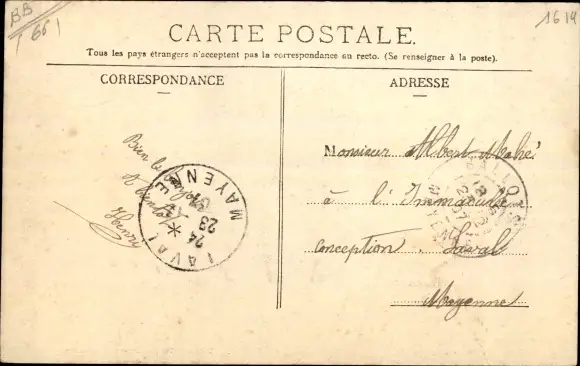 BB
(66)
1614
CARTE POSTALE.
Tous les pays étrangers n'acceptent pas la correspondance au recto. (Se renseigner à la poste).
CORRESPONDANCE
ADRESSE
Bien le bonjour
Henry
LAVAL
MAYENNE
24
23
Monsieur Albert Mahé
à l'Immaculée
Conception. Laval
Mayenne
BALLOTS